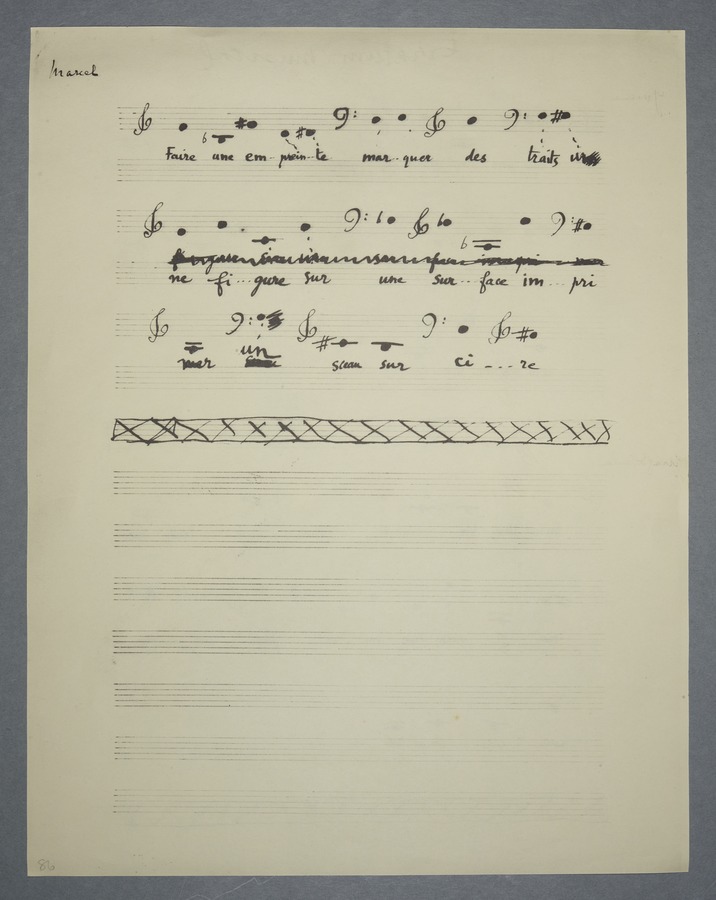 Marcel
Faire une em - prein - te mar - quer des traits u
ne fi ... gure sur une sur ... face im ... pri
mer un sceau sur ci - ... re
86